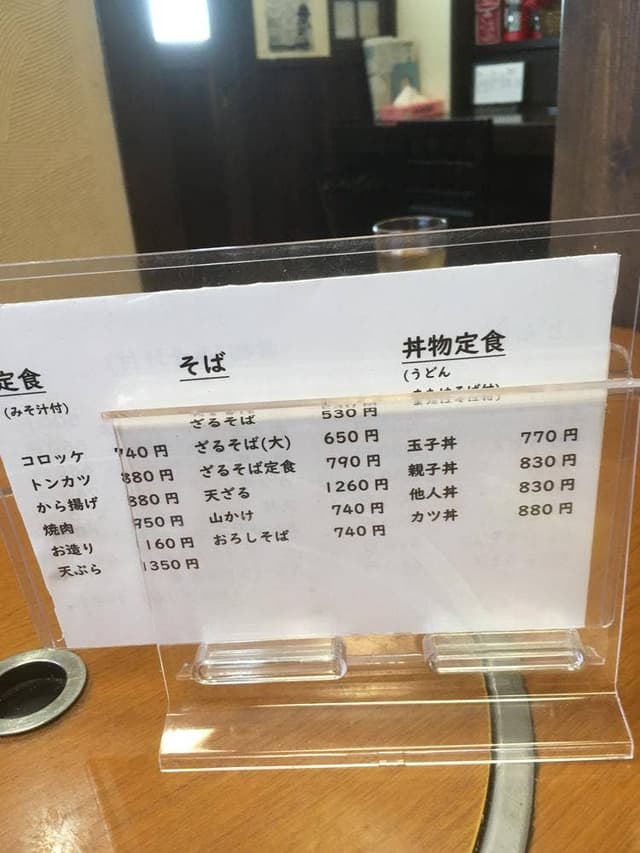 定食
(みそ汁付)
コロッケ 740円
トンカツ 880円
から揚げ 880円
焼肉 950円
お造り 1160円
天ぷら 1350円
そば
ざるそば 530円
ざるそば(大) 650円
ざるそば定食 790円
天ざる 1260円
山かけ 740円
おろしそば 740円
丼物定食
(うどん
またはそば付)
玉子丼 770円
親子丼 830円
他人丼 830円
カツ丼 880円